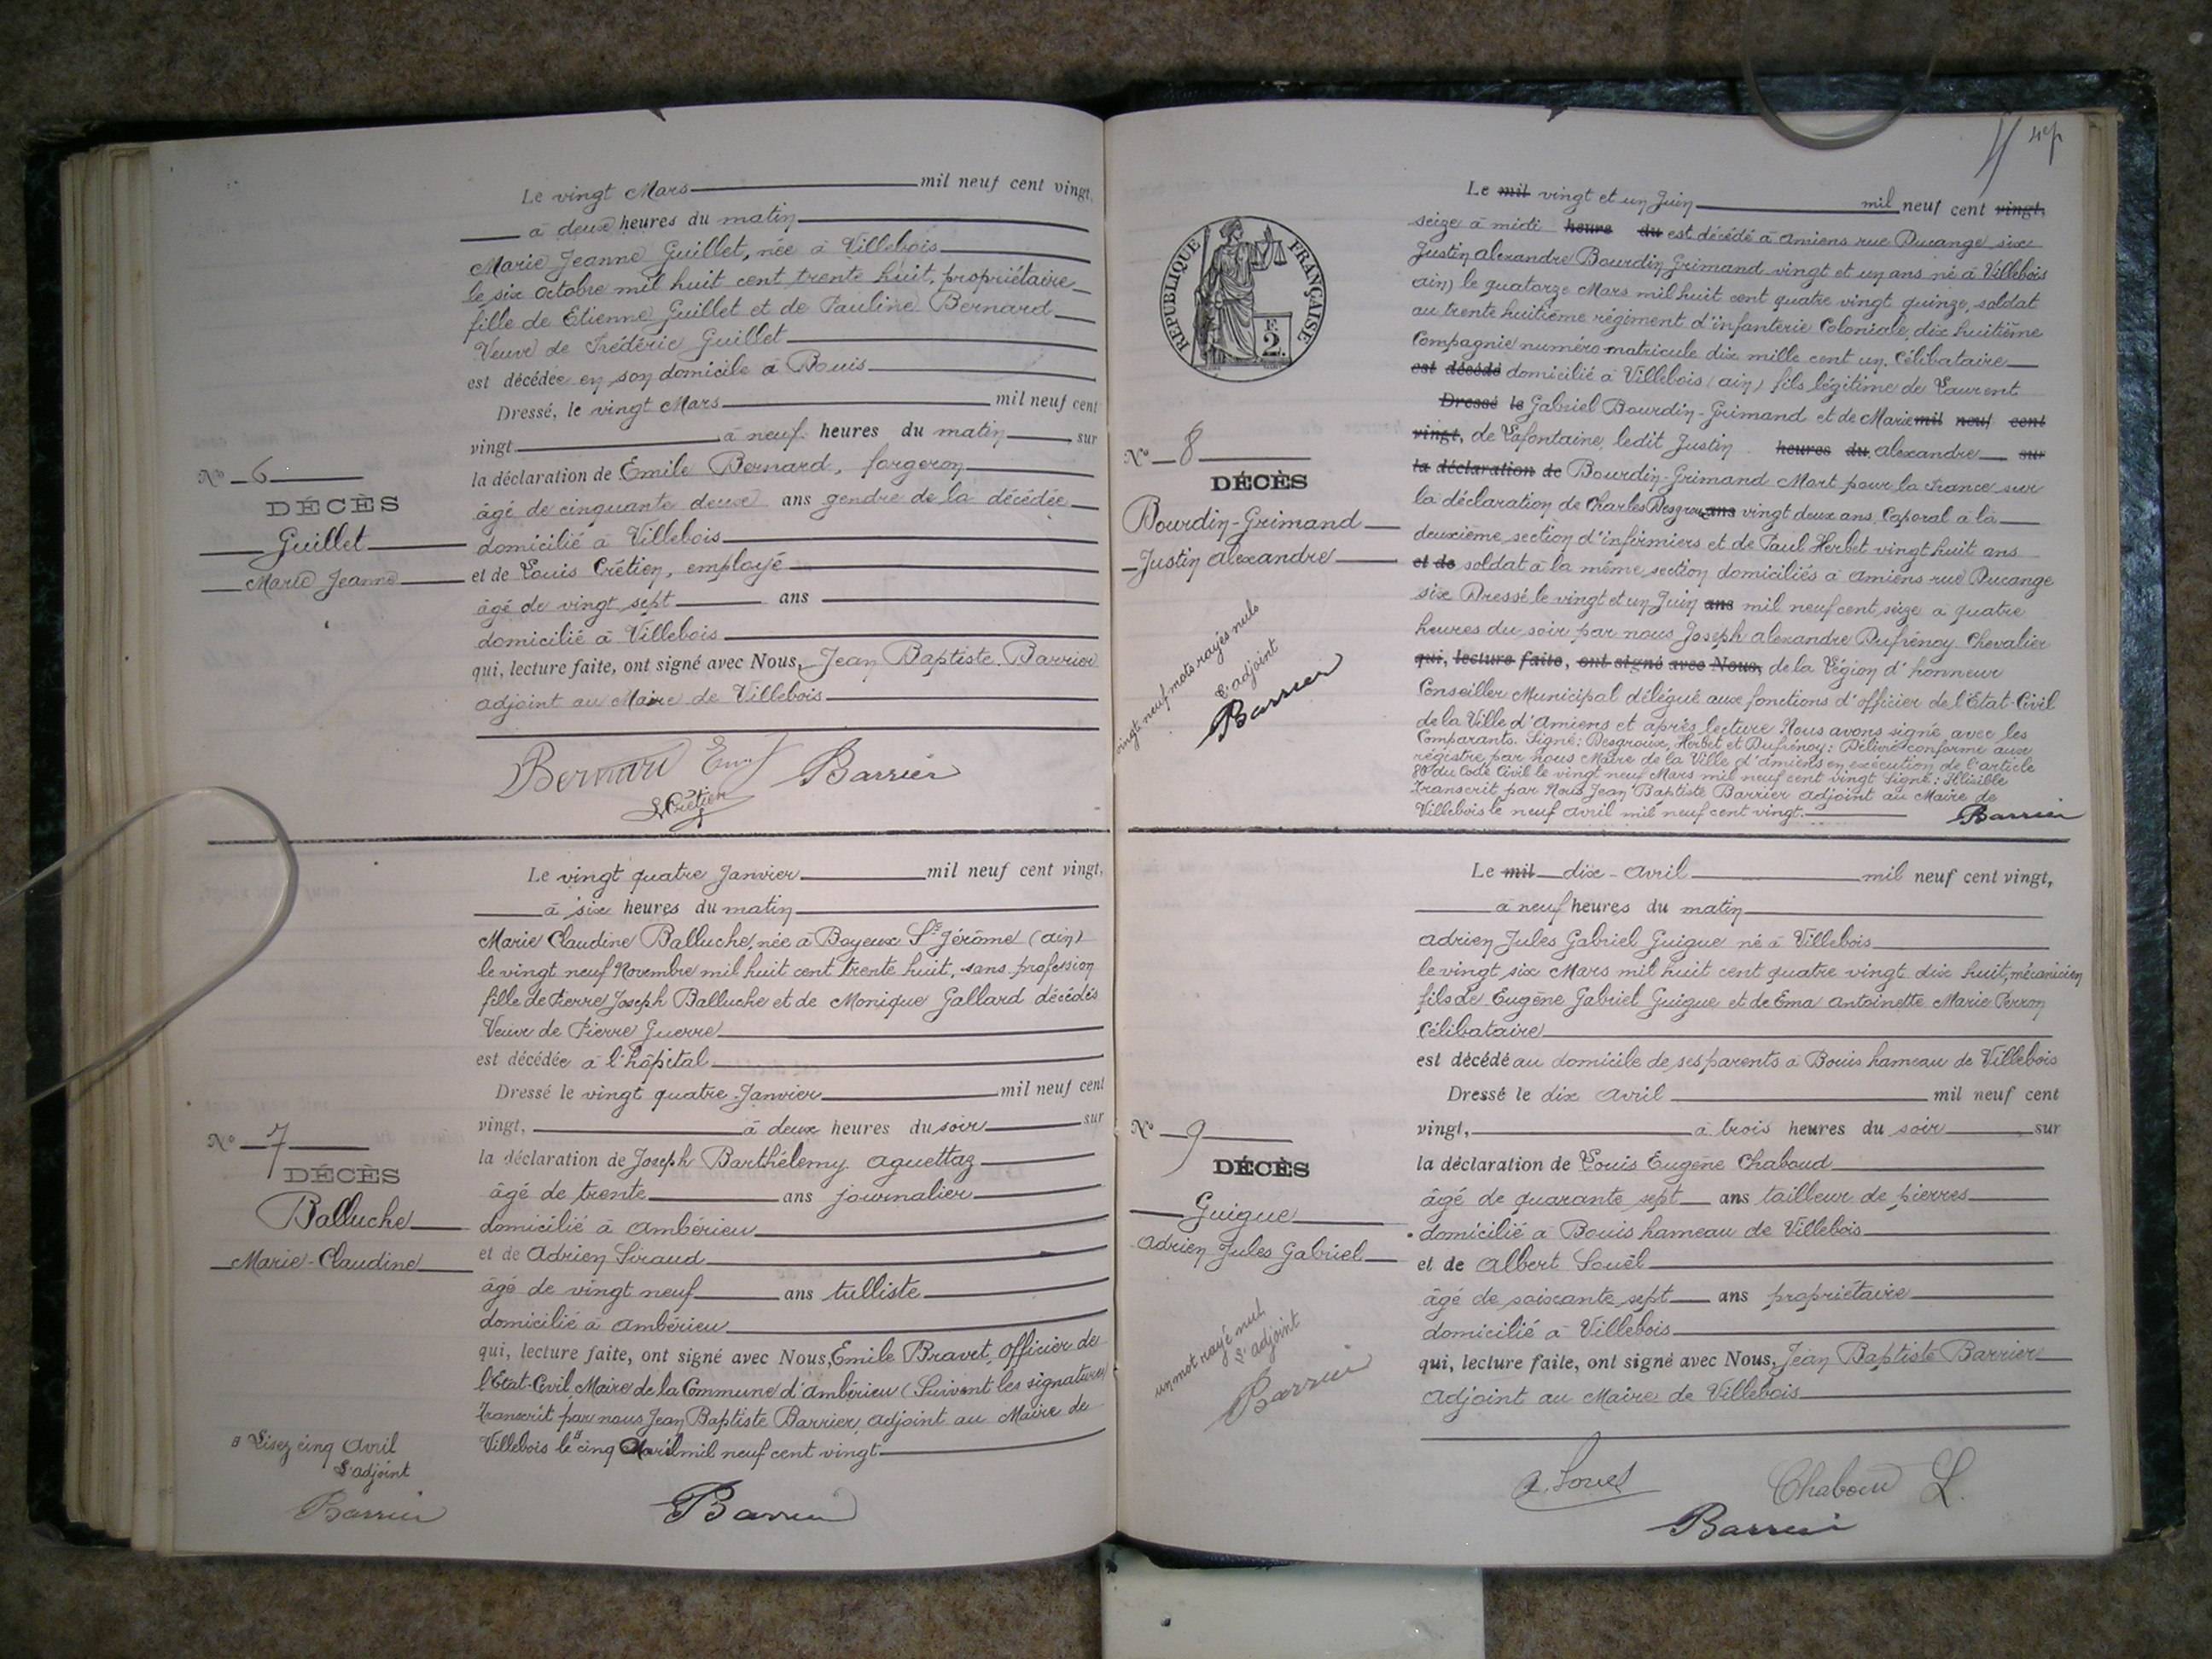 Le vingt Mars mil neuf cent vingt,
à deux heures du matin
Marie Jeanne Guillet, née à Villebois
le six Octobre mil huit cent trente huit, propriétaire
fille de Etienne Guillet et de Pauline Bernard
Veuve de Frédéric Guillet
est décédée en son domicile à Bouis
Dressé, le vingt Mars mil neuf cent
vingt à neuf heures du matin sur
la déclaration de Emile Bernard, forgeron
âgé de cinquante deux ans gendre de la décédée
domicilié à Villebois
et de Louis Crétien, employé
âgé de vingt sept ans
domicilié à Villebois
qui, lecture faite, ont signé avec Nous, Jean Baptiste Barrier
adjoint au Maire de Villebois
Bernard Barrier
L. Crétien
No 6
DÉCÈS
Guillet
Marie Jeanne
Le vingt quatre Janvier mil neuf cent vingt,
à six heures du matin
Marie Claudine Balluche, née à Boyeux St Jérôme (ain)
le vingt neuf Novembre mil huit cent trente huit, sans profession
fille de Pierre Joseph Balluche et de Monique Gallard décédés
Veuve de Pierre Guerre
est décédée à l'hôpital
Dressé le vingt quatre Janvier mil neuf cent
vingt, à deux heures du soir sur
la déclaration de Joseph Barthélemy Aguettaz
âgé de trente ans journalier
domicilié à Ambérieu
et de Adrien Siraud
âgé de vingt neuf ans tulliste
domicilié à Ambérieu
qui, lecture faite, ont signé avec Nous, Emile Bravet, Officier de
l'Etat-Civil, Maire de la Commune d'Ambérieu (Suivent les signatures)
Transcrit par nous Jean Baptiste Barrier, adjoint au Maire de
Villebois le cinq Avril mil neuf cent vingt
Barrier
No 7
DÉCÈS
Balluche
Marie-Claudine
Lisez cinq Avril
L'adjoint
Barrier
Le mil vingt et un Juin mil neuf cent vingt,
seize à midi heure du est décédé à Amiens rue Ducange six
Justin Alexandre Bourdin Grimand vingt et un ans né à Villebois
(ain) le quatorze Mars mil huit cent quatre vingt quinze, soldat
au trente huitième régiment d'infanterie Coloniale, dix huitième
Compagnie numéro matricule dix mille cent un. Célibataire
est décédé domicilié à Villebois (ain) fils légitime de Laurent
Dressé le Gabriel Bourdin-Grimand et de Marie mil neuf cent
vingt, de Lafontaine, ledit Justin heures du Alexandre sur
la déclaration de Bourdin-Grimand Mort pour la France sur
la déclaration de Charles Desgroux ans vingt deux ans, Caporal à la
deuxième section d'infirmiers et de Paul Herbet vingt huit ans
et de soldat à la même section domiciliés à Amiens rue Ducange
six Dressé le vingt et un Juin ans mil neuf cent seize à quatre
heures du soir par nous Joseph Alexandre Dufrénoy Chevalier
qui, lecture faite, ont signé avec Nous, de la Légion d'honneur
Conseiller Municipal délégué aux fonctions d'officier de l'Etat-Civil
de la Ville d'Amiens et après lecture Nous avons signé avec les
Comparants. Signé: Desgroux, Herbet et Dufrénoy: Délivré conforme aux
régistre par nous Maire de la Ville d'Amiens en exécution de l'article
80 du Code Civil le vingt neuf Mars mil neuf cent vingt Signé: Illisible
Transcrit par Nous Jean Baptiste Barrier adjoint au Maire de
Villebois le neuf avril mil neuf cent vingt. Barrier
RÉPUBLIQUE FRANÇAISE
F.
2.
No 8
DÉCÈS
Bourdin-Grimand
Justin Alexandre
vingt neuf mots rayés nuls
L'adjoint
Barrier
Le mil dix-Avril mil neuf cent vingt,
à neuf heures du matin
Adrien Jules Gabriel Guigue né à Villebois
le vingt six Mars mil huit cent quatre vingt dix huit, mécanicien
fils de Eugène Gabriel Guigue et de Ema Antoinette Marie Perron
Célibataire
est décédé au domicile de ses parents à Bouis hameau de Villebois
Dressé le dix Avril mil neuf cent
vingt, à trois heures du soir sur
la déclaration de Louis Eugène Chaboud
âgé de quarante sept ans tailleur de pierres
domicilié à Bouis hameau de Villebois
et de Albert Souël
âgé de soixante sept ans propriétaire
domicilié à Villebois
qui, lecture faite, ont signé avec Nous, Jean Baptiste Barrier
adjoint au Maire de Villebois
A. Souel Chaboud L.
Barrier
No 9
DÉCÈS
Guigue
Adrien Jules Gabriel
un mot rayé nul
L'adjoint
Barrier